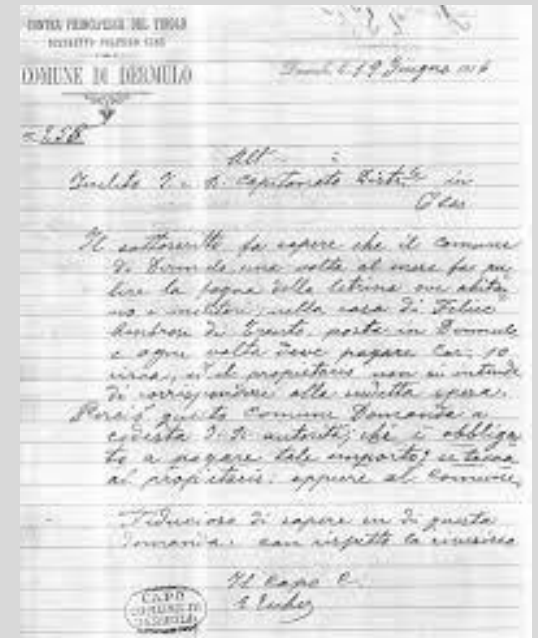 CONTEA PRINCIPESCA DEL TIROLO
DISTRETTO POLITICO CLES
COMUNE DI DERMULO
19 Giugno
Inclito I. R. Capitanato Distr.le in
Cles
Il sottoscritto fa sapere che il comune
di Dermulo, una volta al mese fa pu
lire la fogna della latrina ove abita
no i militari, nella casa di Felice
di Trento, posta in Dermulo
e ogni volta deve pagare Cor. 10
circa, il propietario non si intende
di corrispondere alla sudetta spesa.
Perciò questo Comune Domanda a
codesta autorità, chi è obbliga
to a pagare tale importo; se tocca
al propietario oppure al Comune,
Fiducioso di sapere in di questa
domanda. con rispetto la riverisco
Il Capo C.
CAPO
COMUNE DI
DERMULO